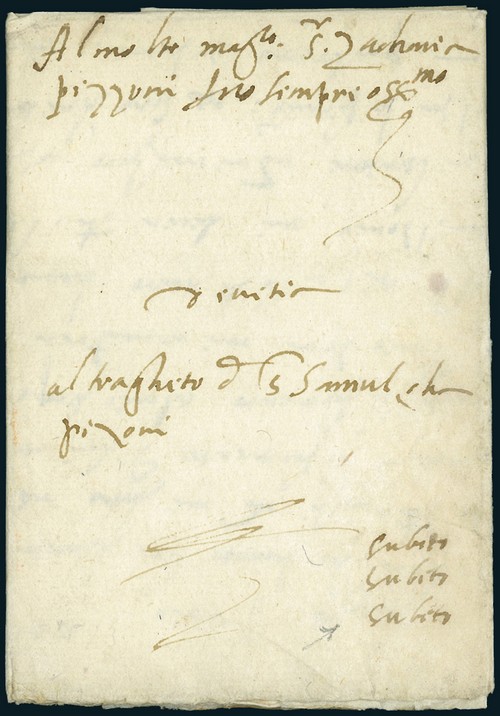 Al molto mag.to S.r Zacharia
pezzoni suo sempre oss.mo
Venetia
al tragheto d S Samuel
pezoni
subito
subito
subito